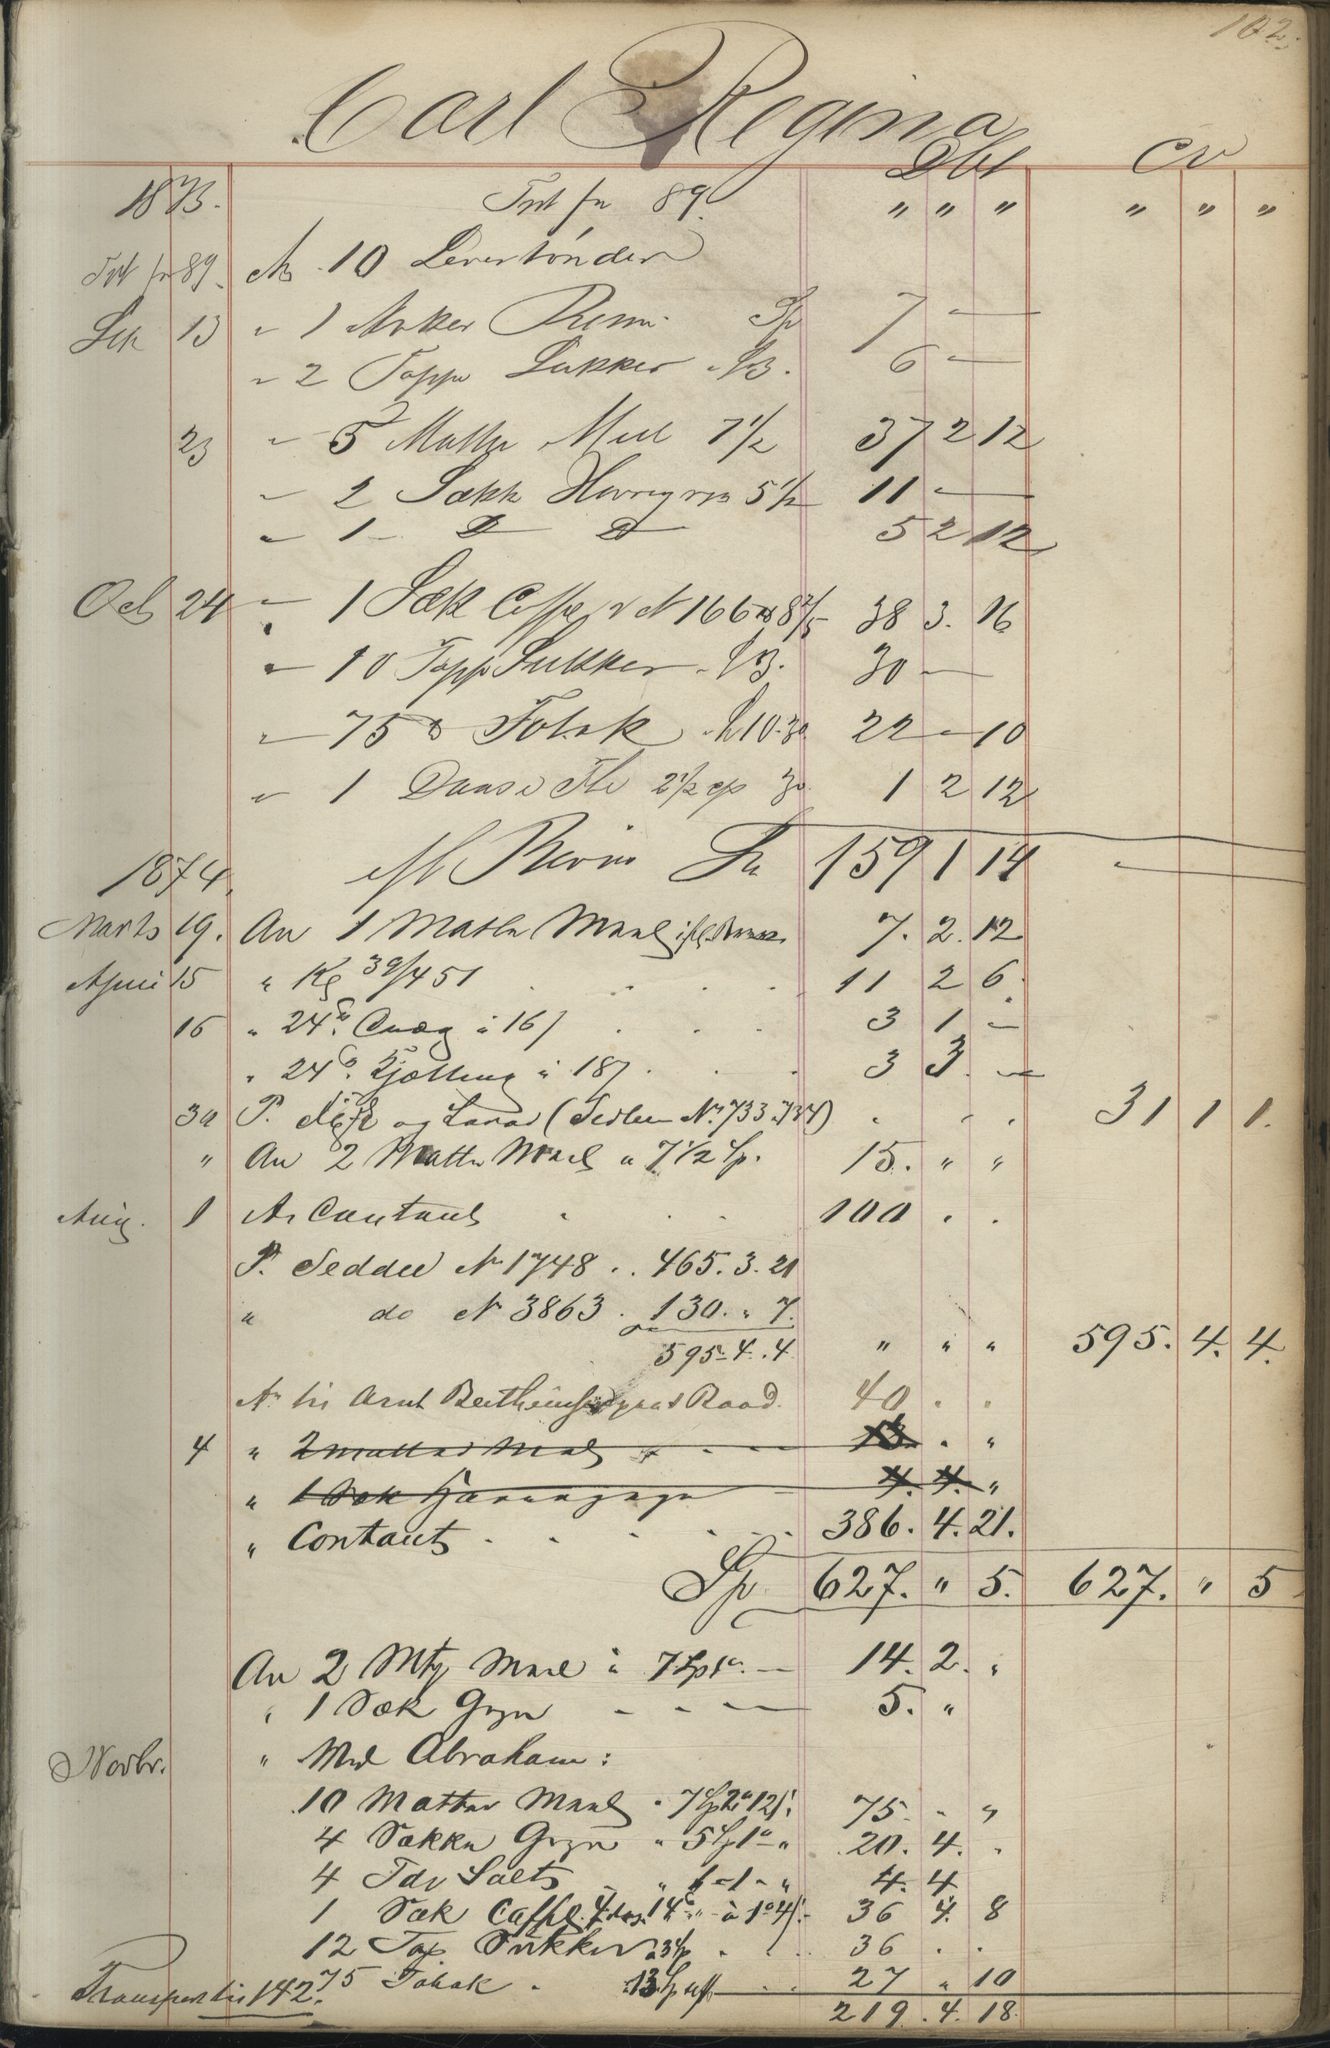 102.
Carl Regina
Dbt Cr
1873. Trt fra 89. " " " " " "
Trt fra 89. An 10 Levertönder
Sep 13 " 1 Anker Sp 7 —
" 2 Toppe Sukker á 3. 6 —
23 " 5 Matter Meel 7 1/2 37 2 12
" 2 Sække Havregryn 5 1/2 11 —
" 1 — D D 5 2 12
Oct 24 " 1 Sæk Caffe N 166 38 3. 16
" 10 Topp Sukker á 3. 30 —
" 75 Tobak 10.30 22 — 10
" 1 Daase The 2 1/2 30 1 2 12
159 1 14 —
1874.
Marts 19. An 1 Matte Meel 7. 2. 12
April 15 " Kg 39/451 . . . . 11 2 6.
16 " 24 á 16/ . . . 3 1 —
" 24 á 18/. . . 3 3. —
30 P. og (Sedlen No. 733.734) . . . 31 1 1.
" An 2 Matter Meel a 7 1/2 Sp. 15. " "
Aug. 1 An Contant . . . 100 . .
P. Seddel No 1748 . . 465. 3. 21
" do No 3863 . 130. " 7.
595. 4. 4 " " " 595. 4. 4.
An til Arnt 40 . .
4 " 2 Matter Meel . . "
" 1 Sæk 4. 4. "
" Contant . . . . . 386. 4. 21.
Sp. 627. " 5. 627. " 5
An 2 Mtr Meel á 7 Sp — 14. 2. "
" 1 Sæk Gryn — — — 5. "
Novbr. " Med Abraham:
10 Matter Meel " 7 Sp 2 12/. 75. . "
4 Sække Gryn " 5 Sp 1 " 20. 4. .
4 Tdr Salt " 1 - 1 - " 4. 4
1 Sæk Caffe 36 4. 8
12 Top Sukker á 3 Sp . . . 36 . .
75 Tobak . 27 " 10
Transport til 142. 219. 4. 18.